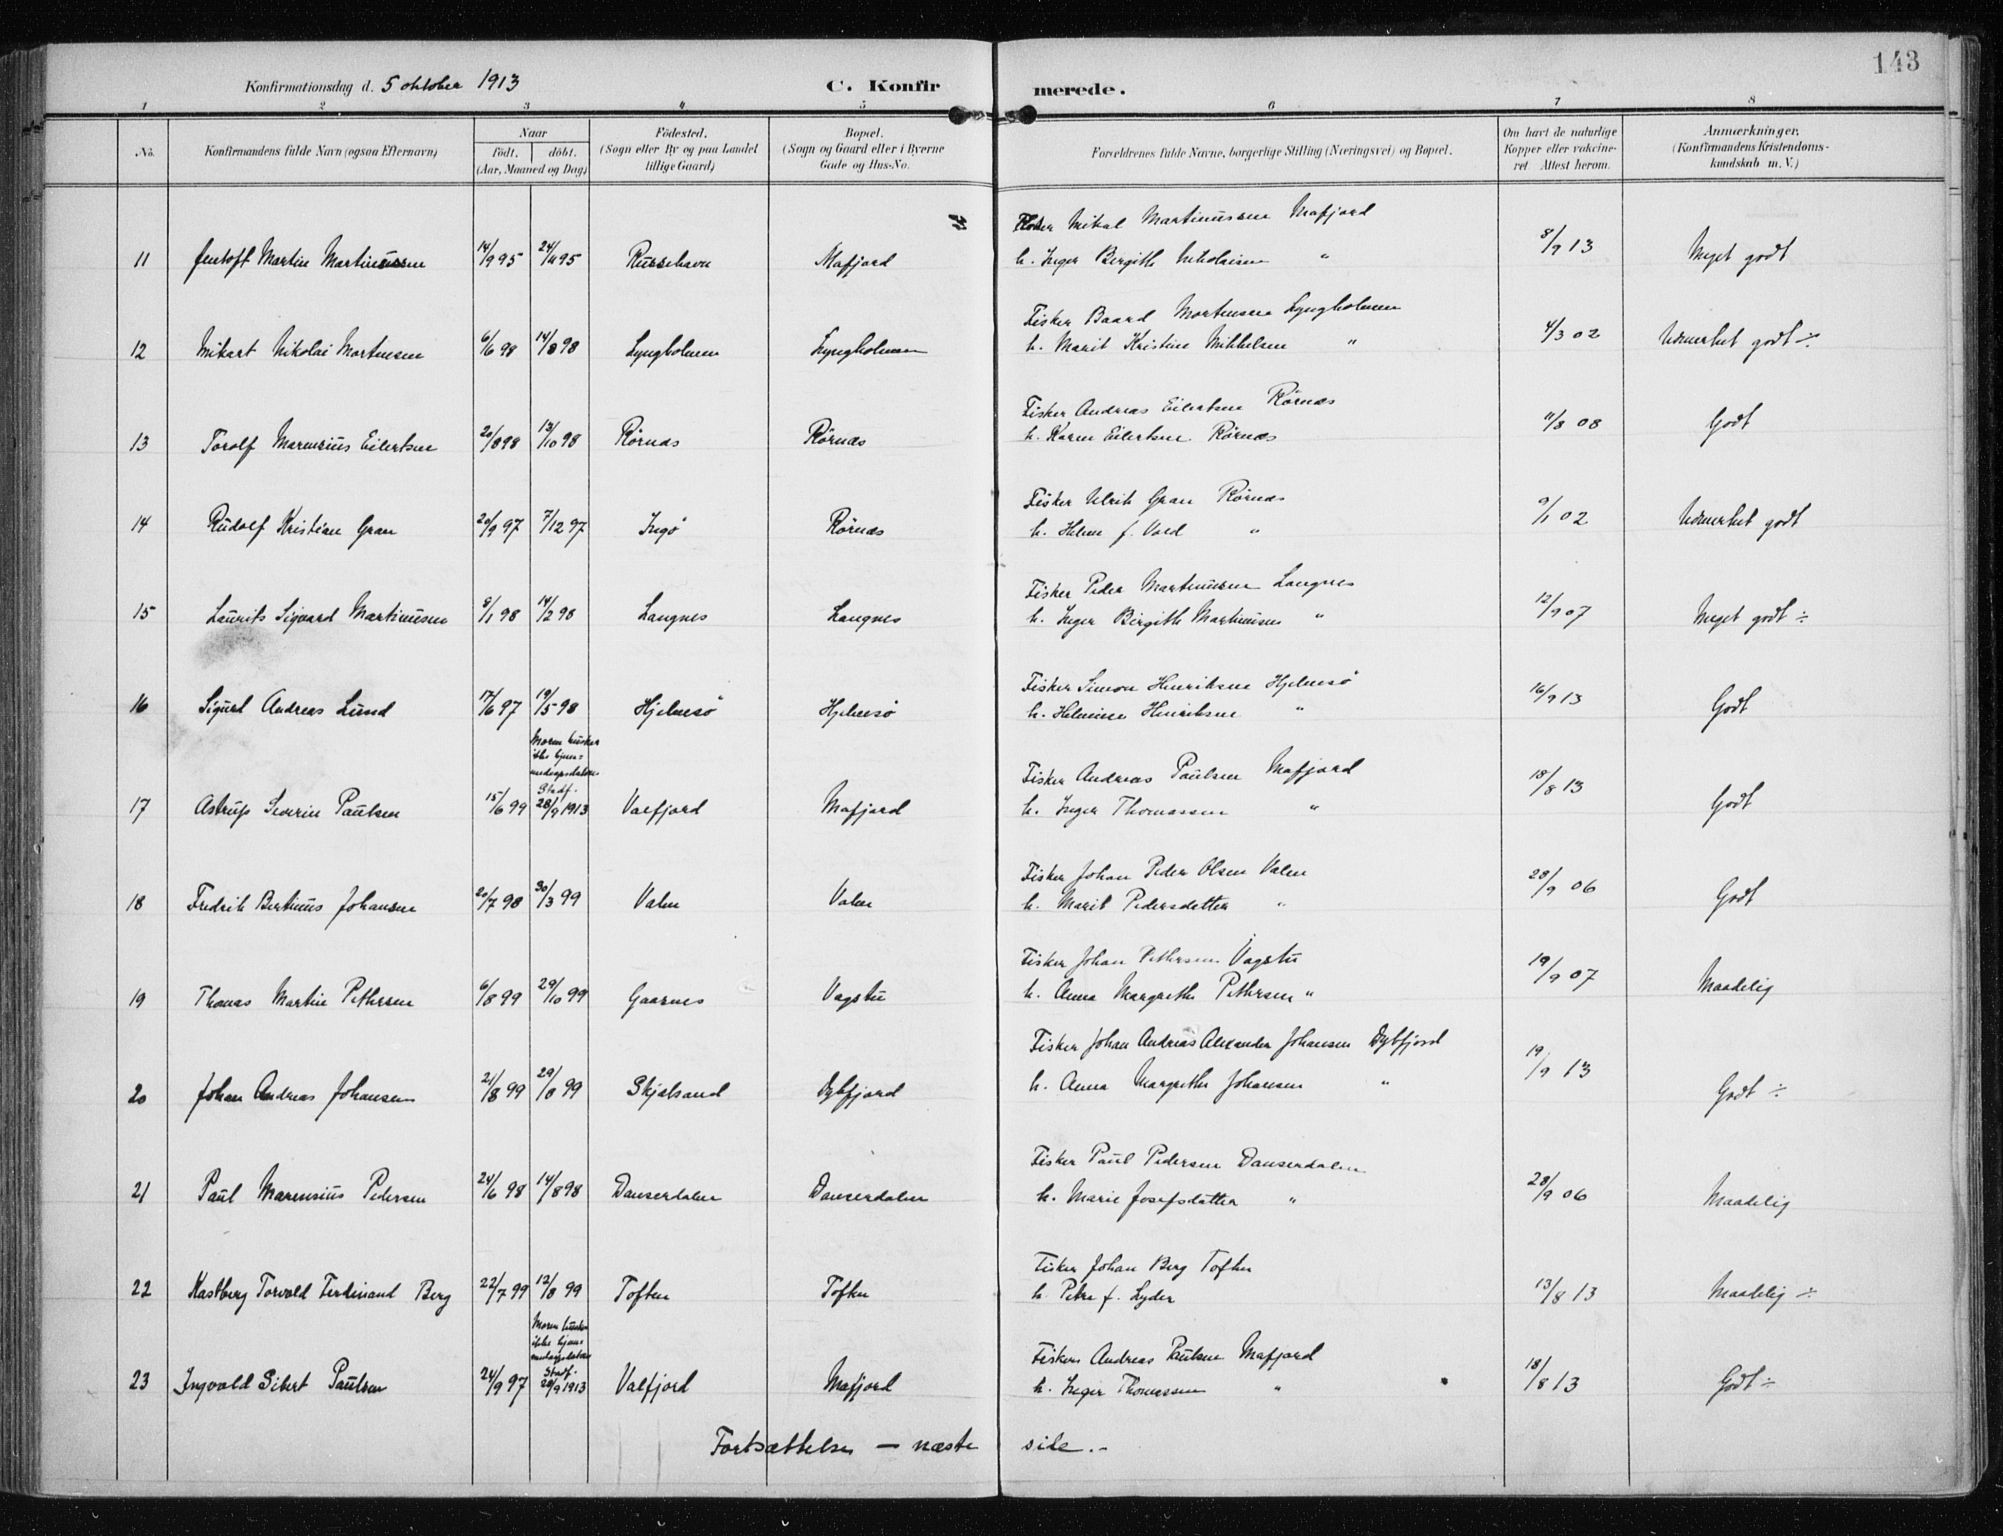 143
Konfirmationsdag d. 5 oktober 1913 C. Konfir merede.
1 2 3 4 5 6 7 8
No. Konfirmandens fulde Navn (ogsaa Efternavn) Naar Födt. döbt. (Aar, Maaned og Dag) Födested. (Sogn eller By og paa Landet tillige Gaard) Bopæl. (Sogn og Gaard eller i Byerne Gade og Hus-No. Forældrenes fulde Navne, borgerlige Stilling (Næringsvei) og Bopæl. Om havt de naturlige Kopper eller vakcineret Attest herom. Anmærkninger. (Konfirmandens Kristendomskundskab m. V.)
Fisker Mikal Martinussen Mafjord
11 Jentoft Martin Martinussen 14/9 95 24/11 95 Russehavn Mafjord h. Inger Birgith Nikolaisen " 8/9 13 Meget godt
Fisker Baard Mortensen Lyngholmen
12 Mikart Nikolai Mortensen 6/6 98 14/8 98 Lyngholmen Lyngholmen h. Marit Kristine Mikkelsen " 4/3 02 Udmerket godt ÷
Fisker Andreas Eilertsen Rörnæs
13 Torolf Marensius Eilertsen 20/8 98 13/10 98 Rörnæs Rörnæs h. Karen Eilertsen Rörnæs 11/8 08 Godt
Fisker Ulrik Gran Rörnæs
14 Rudolf Kristian Gran 20/9 97 7/12 97 Ingö Rörnæs h. Helene f. Vold " 9/1 02 Udmerket godt
Fisker Peder Martinussen Langnes
15 Laurits Sigvard Martinusen 8/1 98 14/2 98 Langnes Langnes h. Inger Birgith Martinusen " 12/9 07 Meget godt ÷
Fisker Simon Henriksen Hjelmsö
16 Sigurd Andreas Lund 17/6 97 19/5 98 Hjelmesö Hjelmesö h. Helmine Henriksen " 16/9 13 Godt
Moren husker
ikke hjem=
medaapsdaten
Stadf.
Fisker Andreas Paulsen Mafjord
17 Astrup Severin Paulsen 15/6 99 28/9 1913 Valfjord Mafjord h. Inger Thomassen " 18/8 13 Godt
Fisker Johan Peder Olsen Valen
18 Fredrik Bertinus Johansen 20/7 98 30/3 99 Valen Valen h. Marit Pedersdatter " 28/9 06 Godt
Fisker Johan Pettersen Vagstu
19 Thomas Martin Pettersen 6/8 99 29/10 99 Gaarnes Vagstu h. Anna Margrethe Pettersen " 19/9 07 Maadelig
Fisker Johan Andreas Alexander Johansen Dybfjord
20 Johan Andreas Johansen 21/8 99 29/8 99 Skjelsand Dybfjord h. Anna Margrethe Johansen " 19/9 13 Godt ÷
Fisker Paul Pedersen Danserdalen
21 Paul Marensius Pedersen 24/6 98 14/8 98 Danserdalen Danserdalen h. Marie Josefsdatter " 28/9 06 Maadelig
Fisker Johan Berg Toften
22 Kastberg Torvald Ferdinand Berg 22/7 99 12/8 99 Toften Toften h. Petra f. Lyder 13/8 13 Maadelig ÷
Moren husker
ikke hjem=
medaapsdaten
Stadf.
Fisker Andreas Paulsen Mafjord
23 Ingvald Sibert Paulsen 24/9 97 28/9 1913 Valfjord Mafjord h. Inger Thomassen " 18/8 13 Godt ÷
Fortsættelse — næste side. –